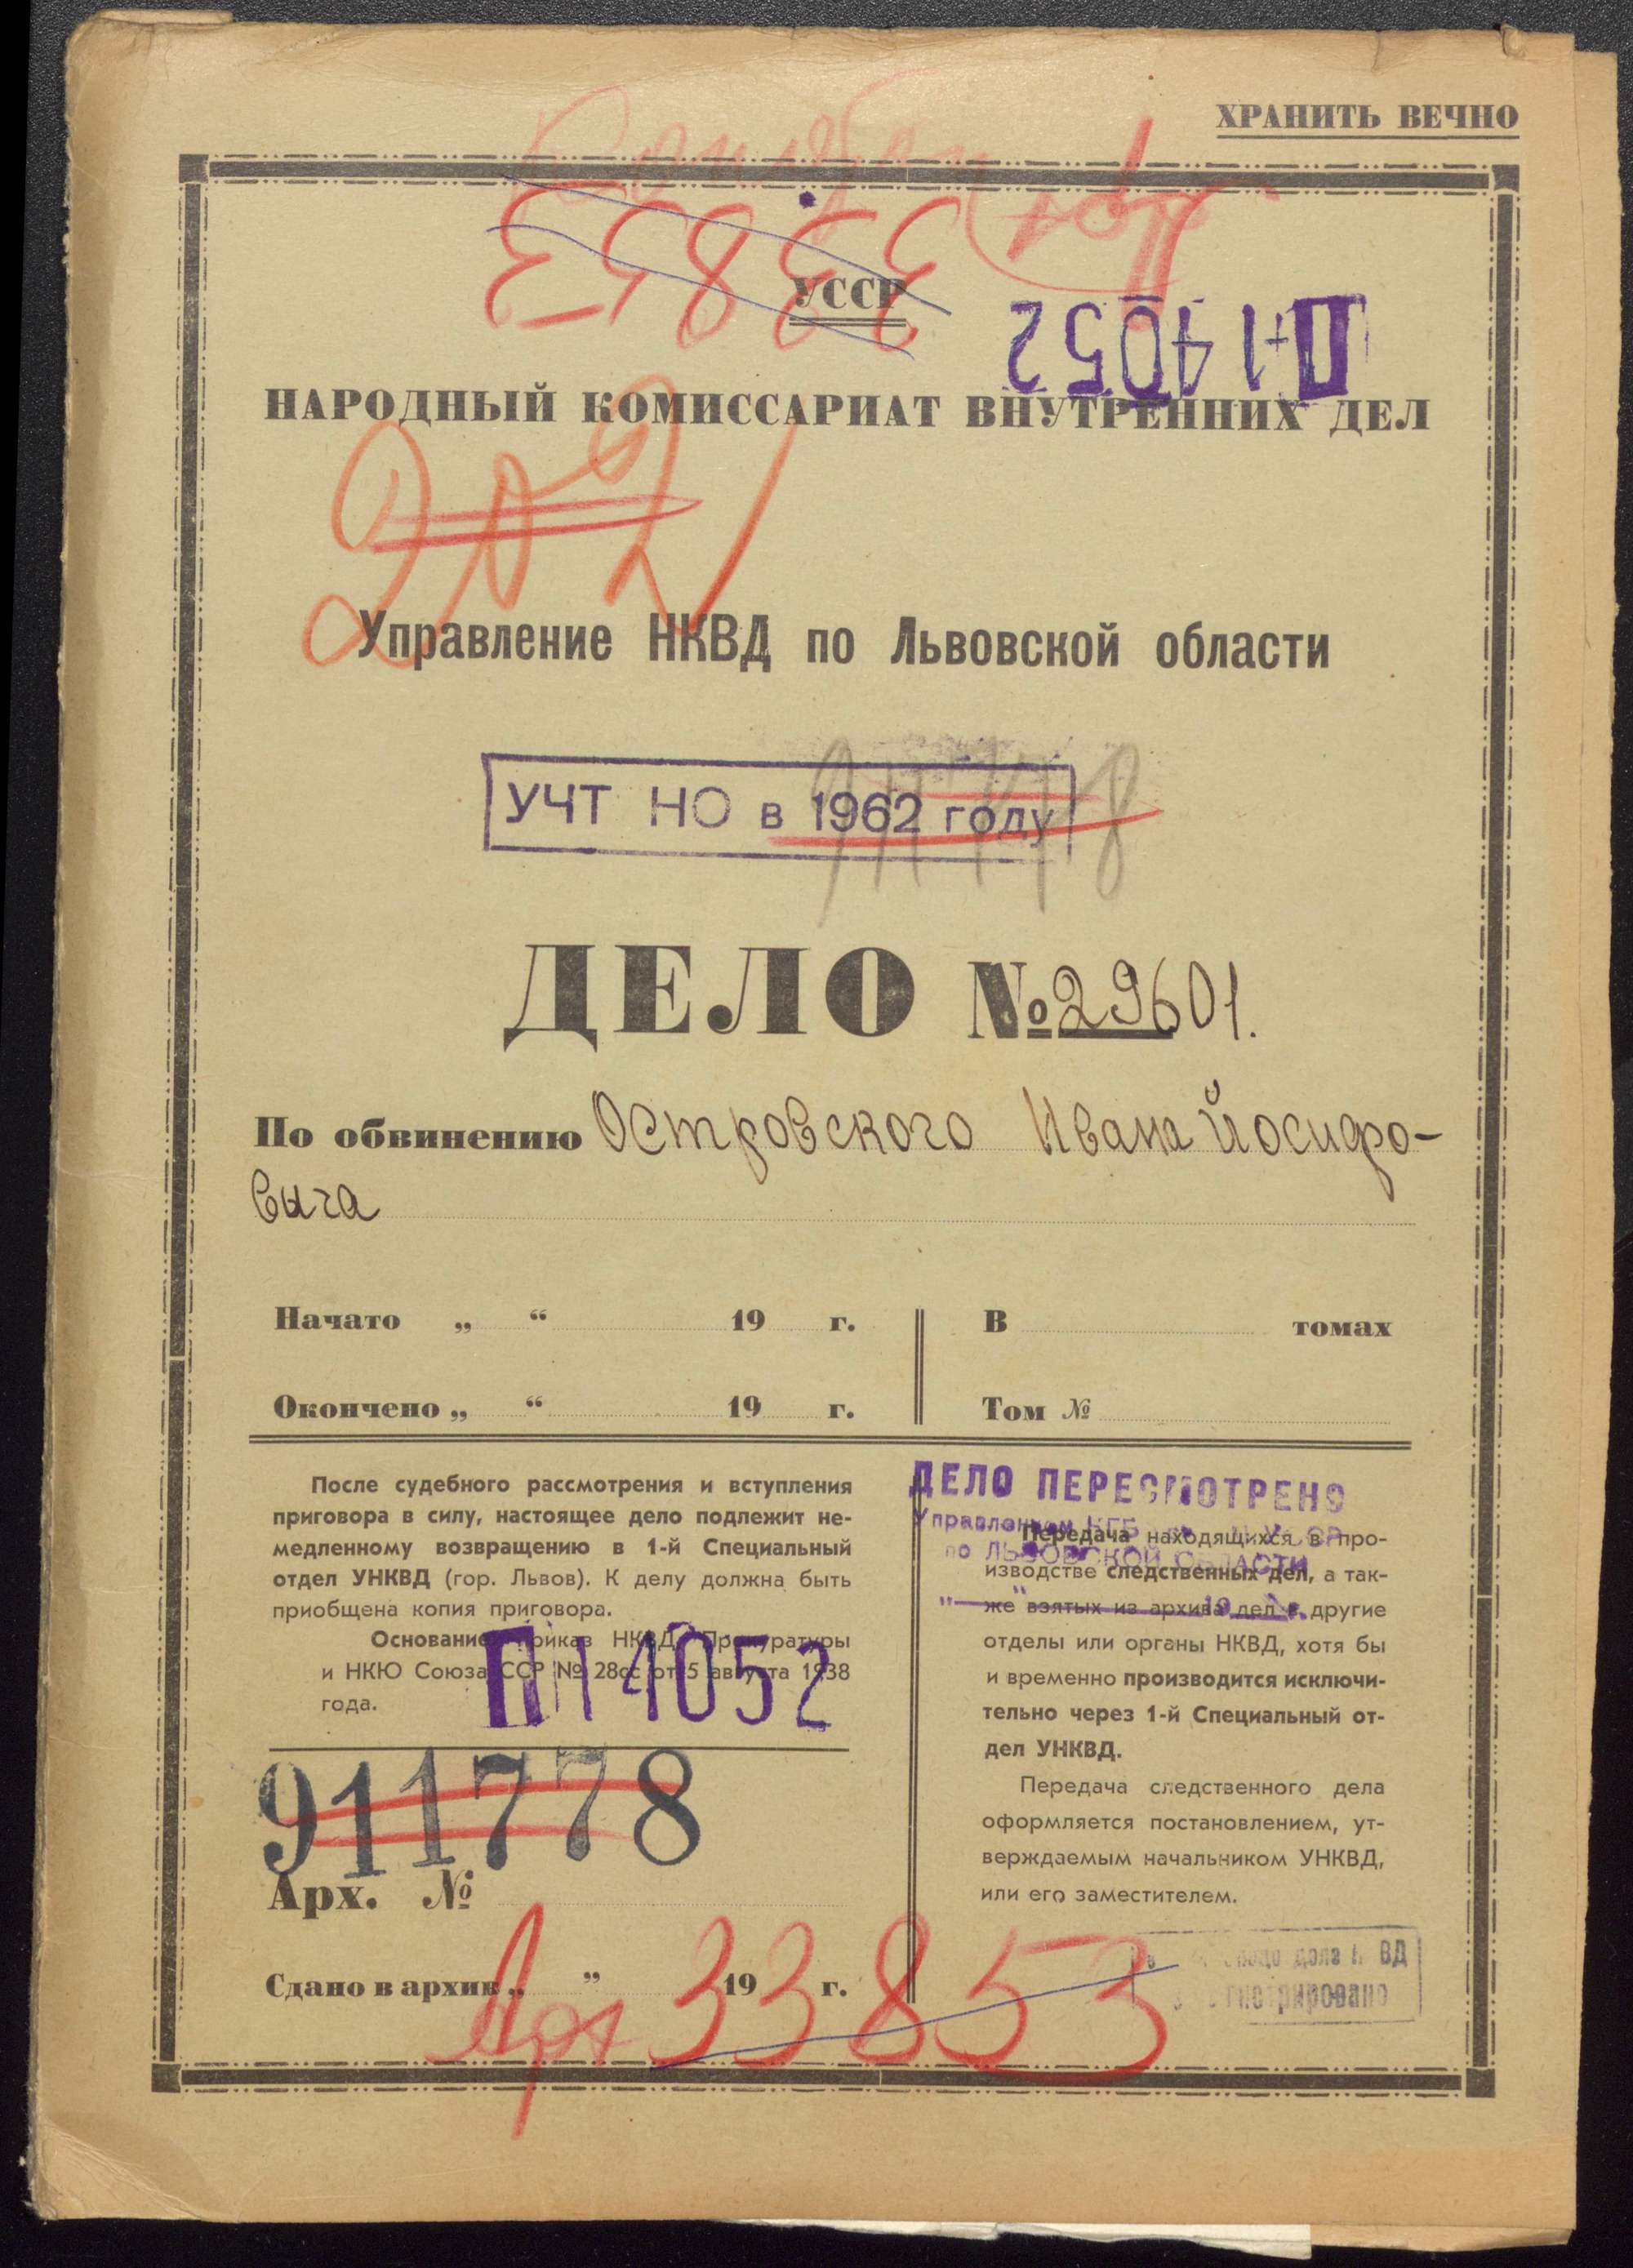 ХРАНИТЬ ВЕЧНО
33853
УССР
П-14052
НАРОДНЫЙ КОМИССАРИАТ ВНУТРЕННИХ ДЕЛ
Управление НКВД по Львовской области
УЧТ НО в 1962 году
ДЕЛО №29601.
По обвинению Островского Ивана Йосифо-
вича
Начато „ “ 19 г.
В томах
Окончено „ “ 19 г.
Том №
После судебного рассмотрения и вступления
приговора в силу, настоящее дело подлежит не-
медленному возвращению в 1-й Специальный
отдел УНКВД (гор. Львов). К делу должна быть
приобщена копия приговора.
Основание приказ НКВД, Прокуратуры
и НКЮ Союза ССР № 28сс от 5 августа 1938
года.
П14052
911778
Арх. №
Сдано в архив „ ” 19 г.
Арх 33853
ДЕЛО ПЕРЕСМОТРЕНО
Управлением КГБ
по ЛЬВОВСКОЙ ОБЛАСТИ
„ “ 19 г.
Передача находящихся в про-
изводстве следственных дел, а так-
же взятых из архива дел в другие
отделы или органы НКВД, хотя бы
и временно производится исключи-
тельно через 1-й Специальный от-
дел УНКВД.
Передача следственного дела
оформляется постановлением, ут-
верждаемым начальником УНКВД,
или его заместителем.